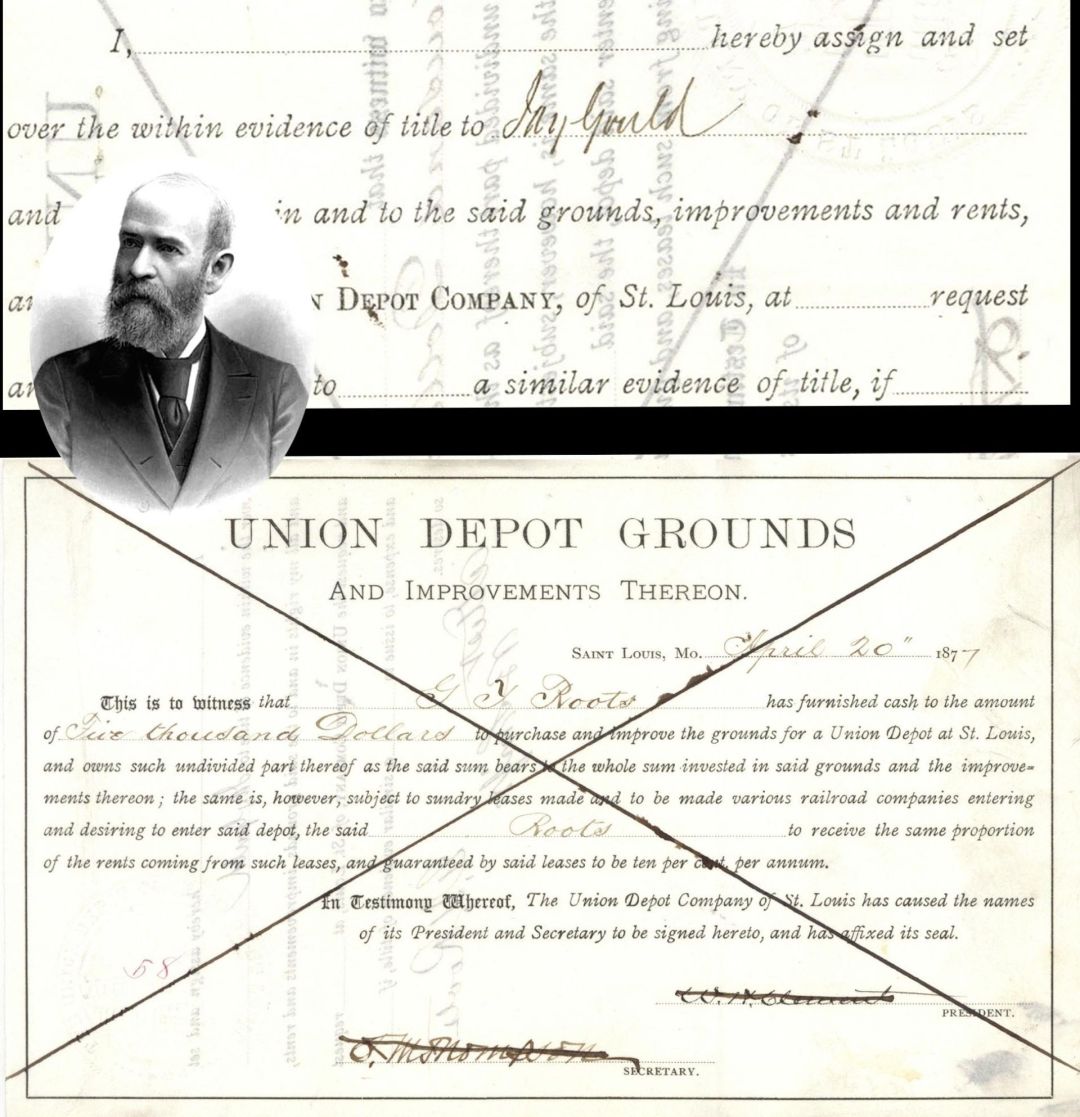 I, hereby assign and set
over the within evidence of title to Jay Gould
and in and to the said grounds, improvements and rents,
DEPOT COMPANY, of St. Louis, at request
to a similar evidence of title, if
UNION DEPOT GROUNDS
AND IMPROVEMENTS THEREON.
SAINT LOUIS, MO. April 20" 1877
This is to witness that G Y Roots has furnished cash to the amount
of Five thousand Dollars to purchase and improve the grounds for a Union Depot at St. Louis,
and owns such undivided part thereof as the said sum bears to the whole sum invested in said grounds and the improve=
ments thereon; the same is, however, subject to sundry leases made and to be made various railroad companies entering
and desiring to enter said depot, the said Roots to receive the same proportion
of the rents coming from such leases, and guaranteed by said leases to be ten per cent, per annum.
In Testimony Whereof, The Union Depot Company of St. Louis has caused the names
of its President and Secretary to be signed hereto, and has affixed its seal.
58
W. H. Clement
PRESIDENT.
Thompson
SECRETARY.